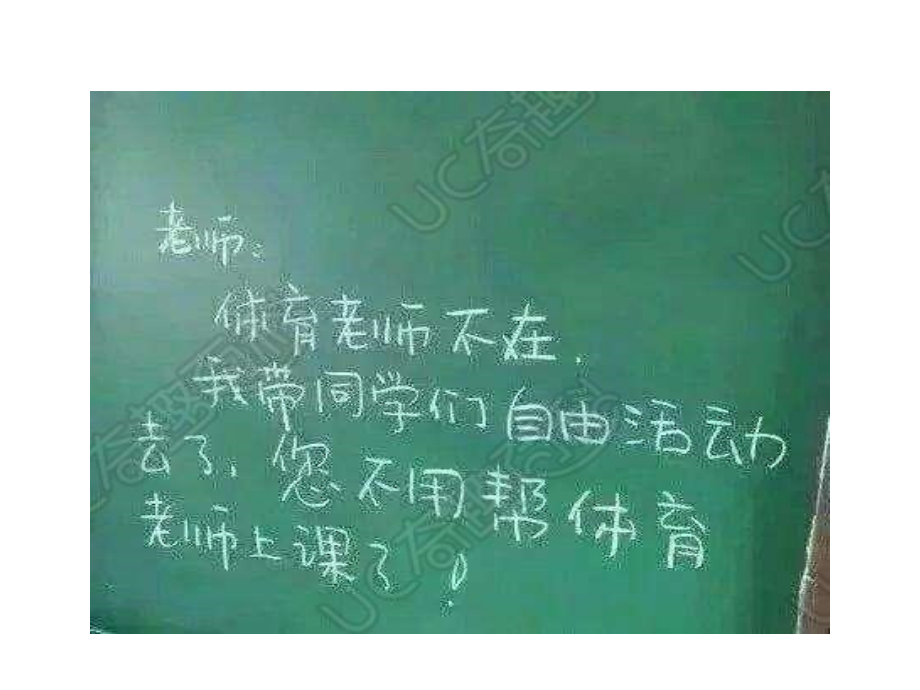 老师:
体育老师不在.
我带同学们自由活动
去了,您不用帮体育
老师上课了!
UC奇趣
UC奇趣
UC奇趣
UC奇趣